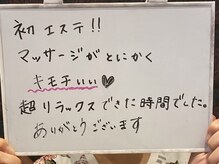 初エステ!!
マッサージがとにかく
キモチいい♥
超リラックスできた時間でした。
ありがとうございます